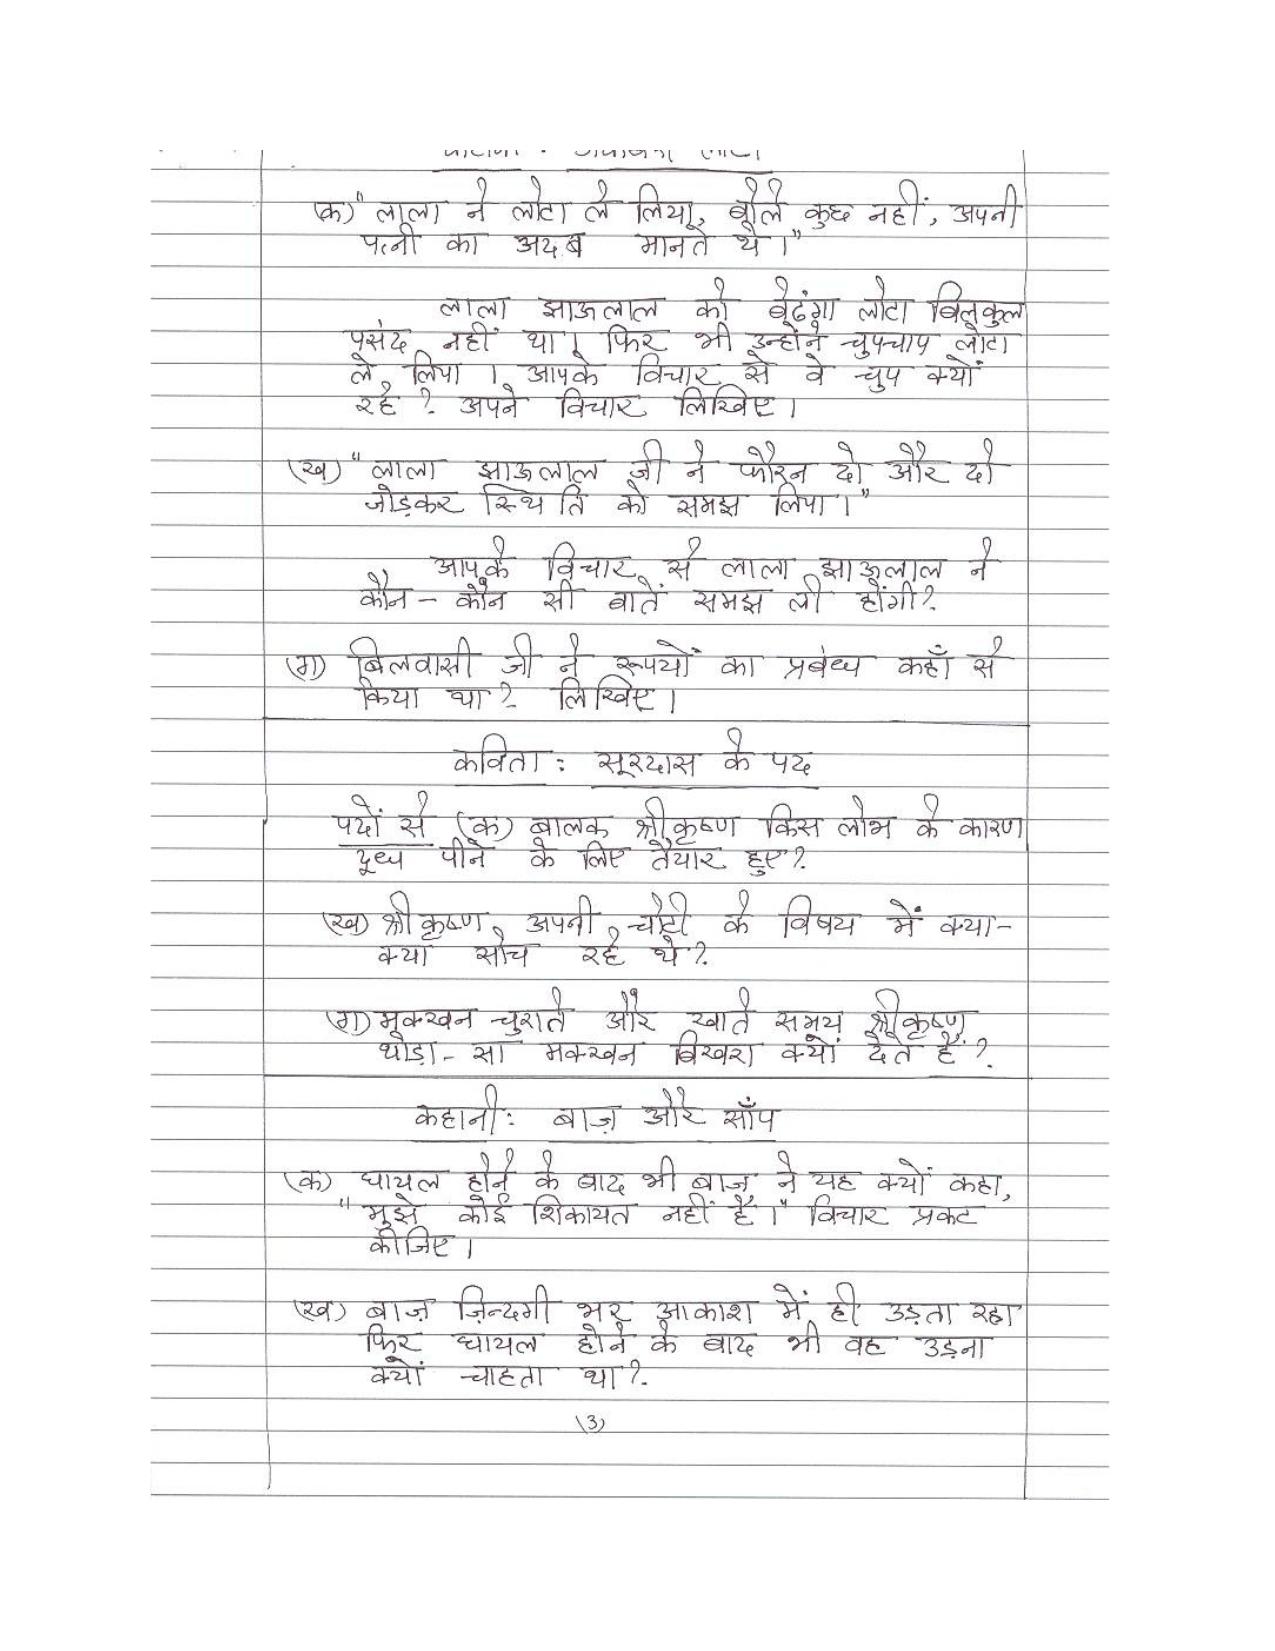 (क) "लाला ने लोटा ले लिया, बोले कुछ नहीं, अपनी
पत्नी का अदब मानते थे।"
लाला झाऊलाल को बेढंगा लोटा बिलकुल
पसंद नहीं था। फिर भी उन्होंने चुपचाप लोटा
ले लिया। आपके विचार से वे चुप क्यों
रहे? अपने विचार लिखिए।
(ख) "लाला झाऊलाल जी ने फौरन दो और दो
जोड़कर स्थिति को समझ लिया।"
आपके विचार से लाला झाऊलाल ने
कौन - कौन सी बातें समझ ली होंगी?
(ग) बिलवासी जी ने रूपयों का प्रबंध कहाँ से
किया था? लिखिए।
कविता: सूरदास के पद
पदों से (क) बालक श्रीकृष्ण किस लोभ के कारण
दूध पीने के लिए तैयार हुए?
(ख) श्रीकृष्ण अपनी चोटी के विषय में क्या-
क्या सोच रहे थे?
(ग) मक्खन चुराते और खाते समय श्रीकृष्ण
थोड़ा - सा मक्खन बिखरा क्यों देते हैं?
कहानी: बाज़ और साँप
(क) घायल होने के बाद भी बाज ने यह क्यों कहा,
"मुझे कोई शिकायत नहीं है।" विचार प्रकट
कीजिए।
(ख) बाज़ ज़िन्दगी भर आकाश में ही उड़ता रहा
फिर घायल होने के बाद भी वह उड़ना
क्यों चाहता था?
(3)